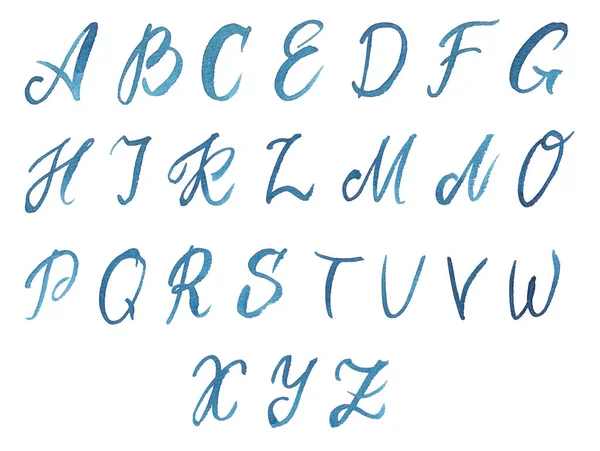 A B C E D F G
H J K L M N O
P Q R S T U V W
X Y Z